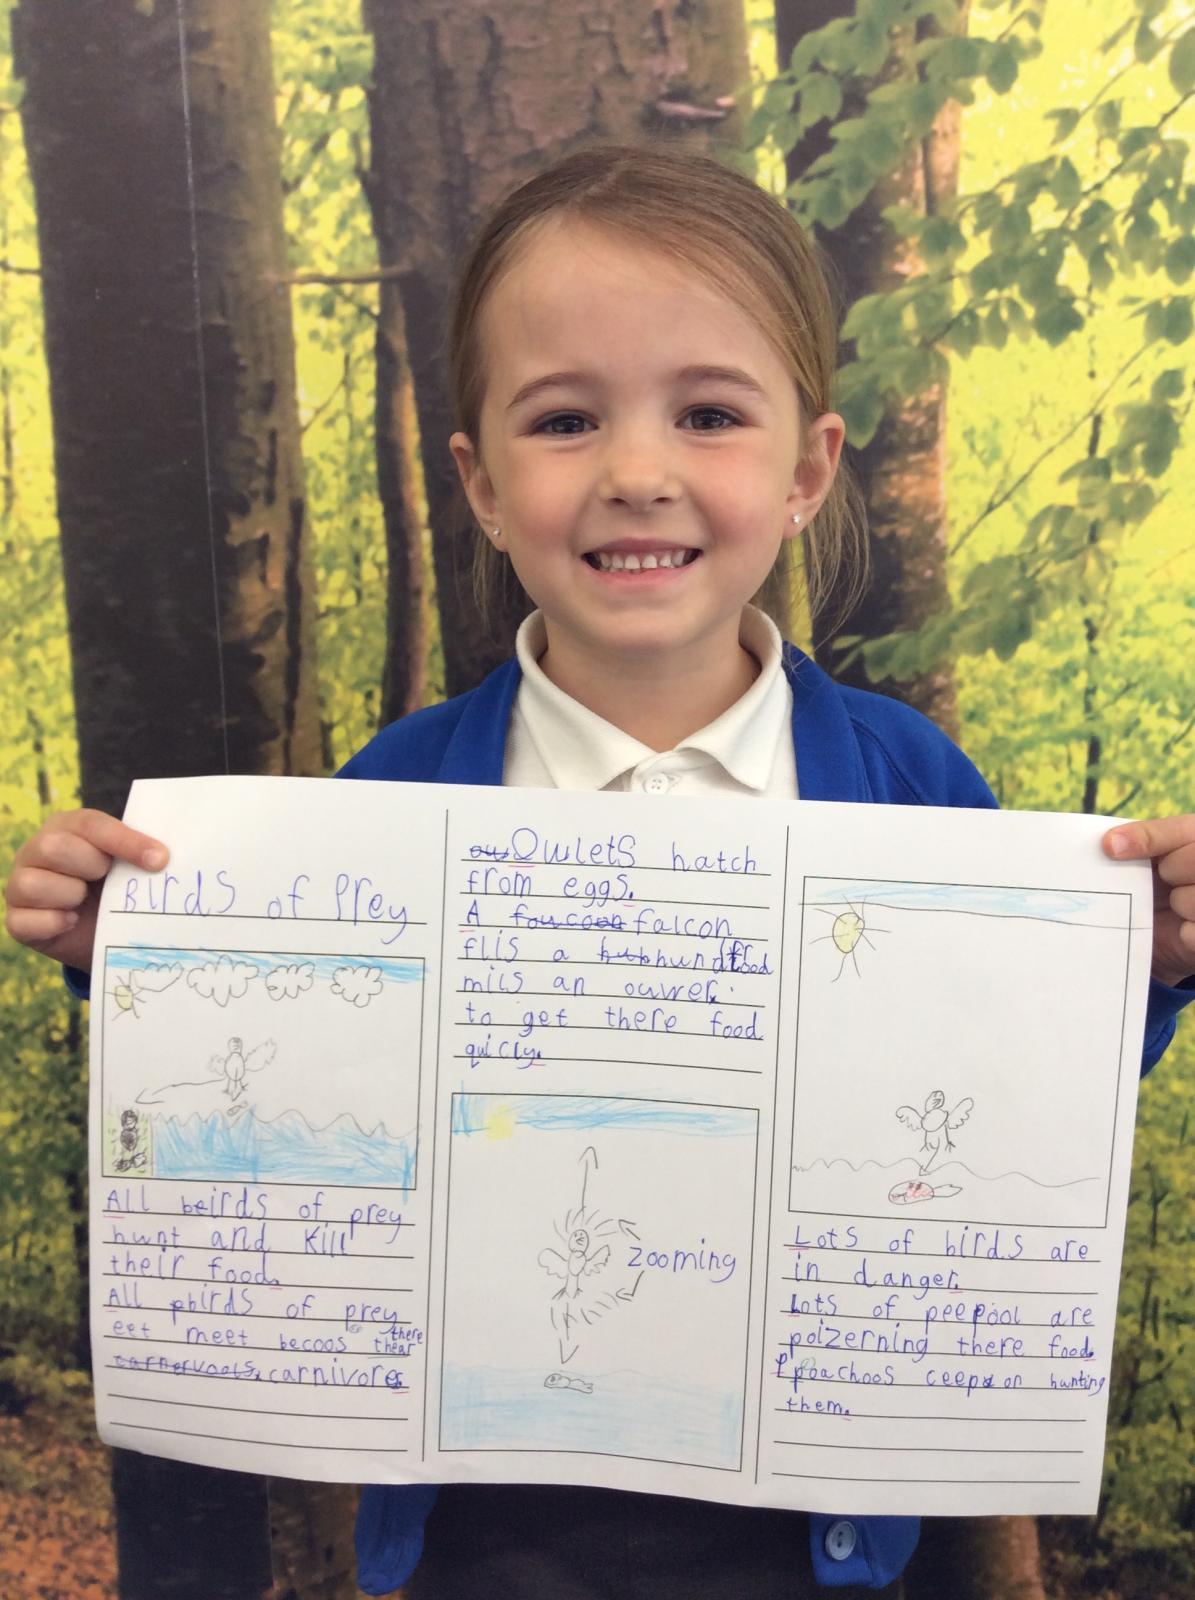 Birds of Prey
All beirds of prey
hunt and kill
their food.
All pbirds of prey
eet meet becoos thear
there
carnervools. carnivores
ow Owlets hatch
from eggs.
A foucoon falcon
flis a hub hundred
mils an ouwer.
to get there food
quicly.
zooming
Lots of birds are
in danger.
Lots of peepool are
poizerning there food.
Ppoachoos ceep on hunting
them.